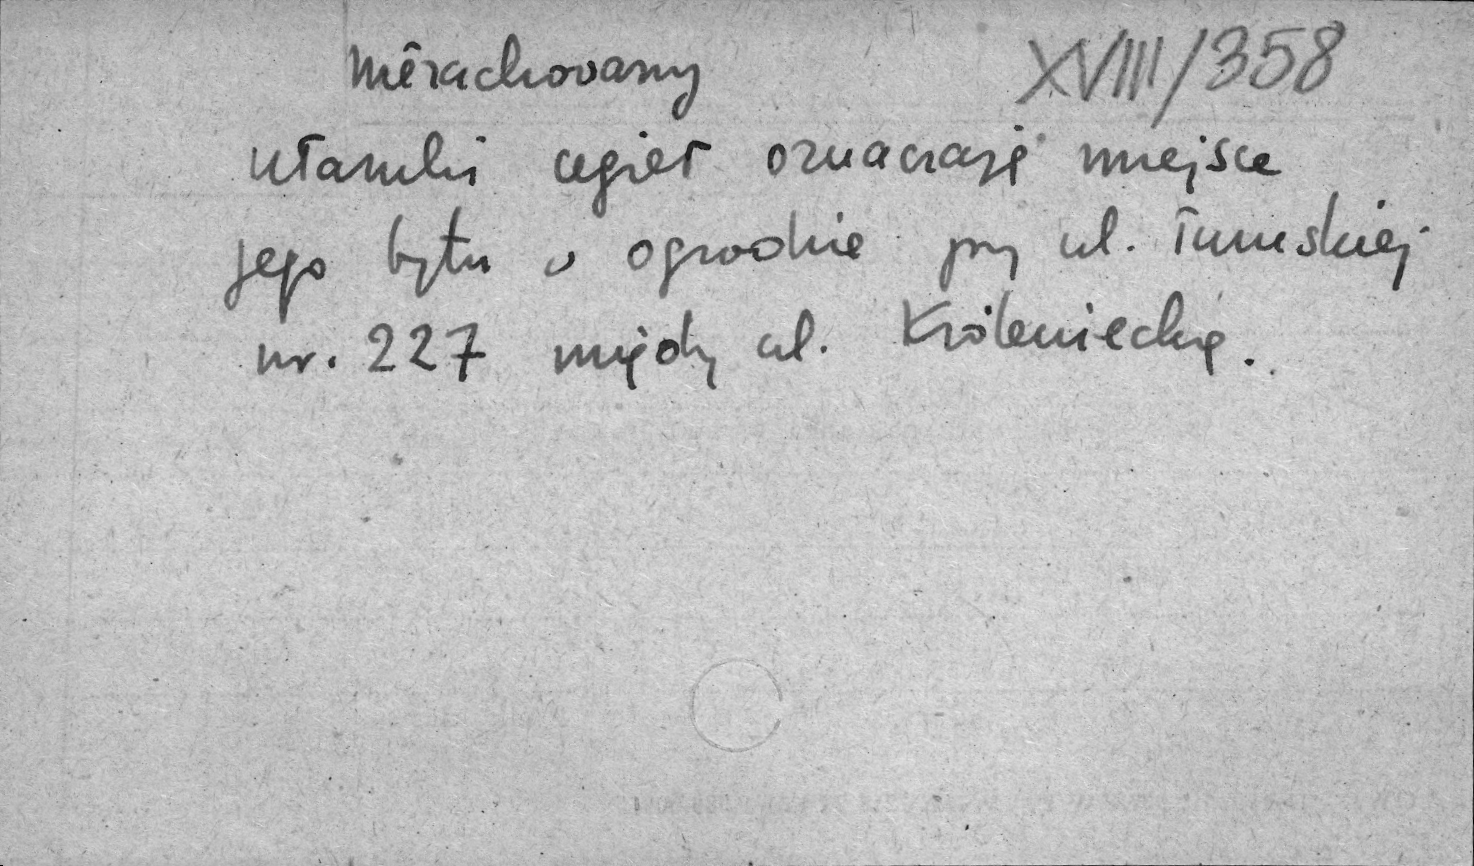 niezachowany XVIII/358
ułamki cegieł oznaczają miejsce
jego bytu w ogrodzie przy ul.
nr. 227 między ul.